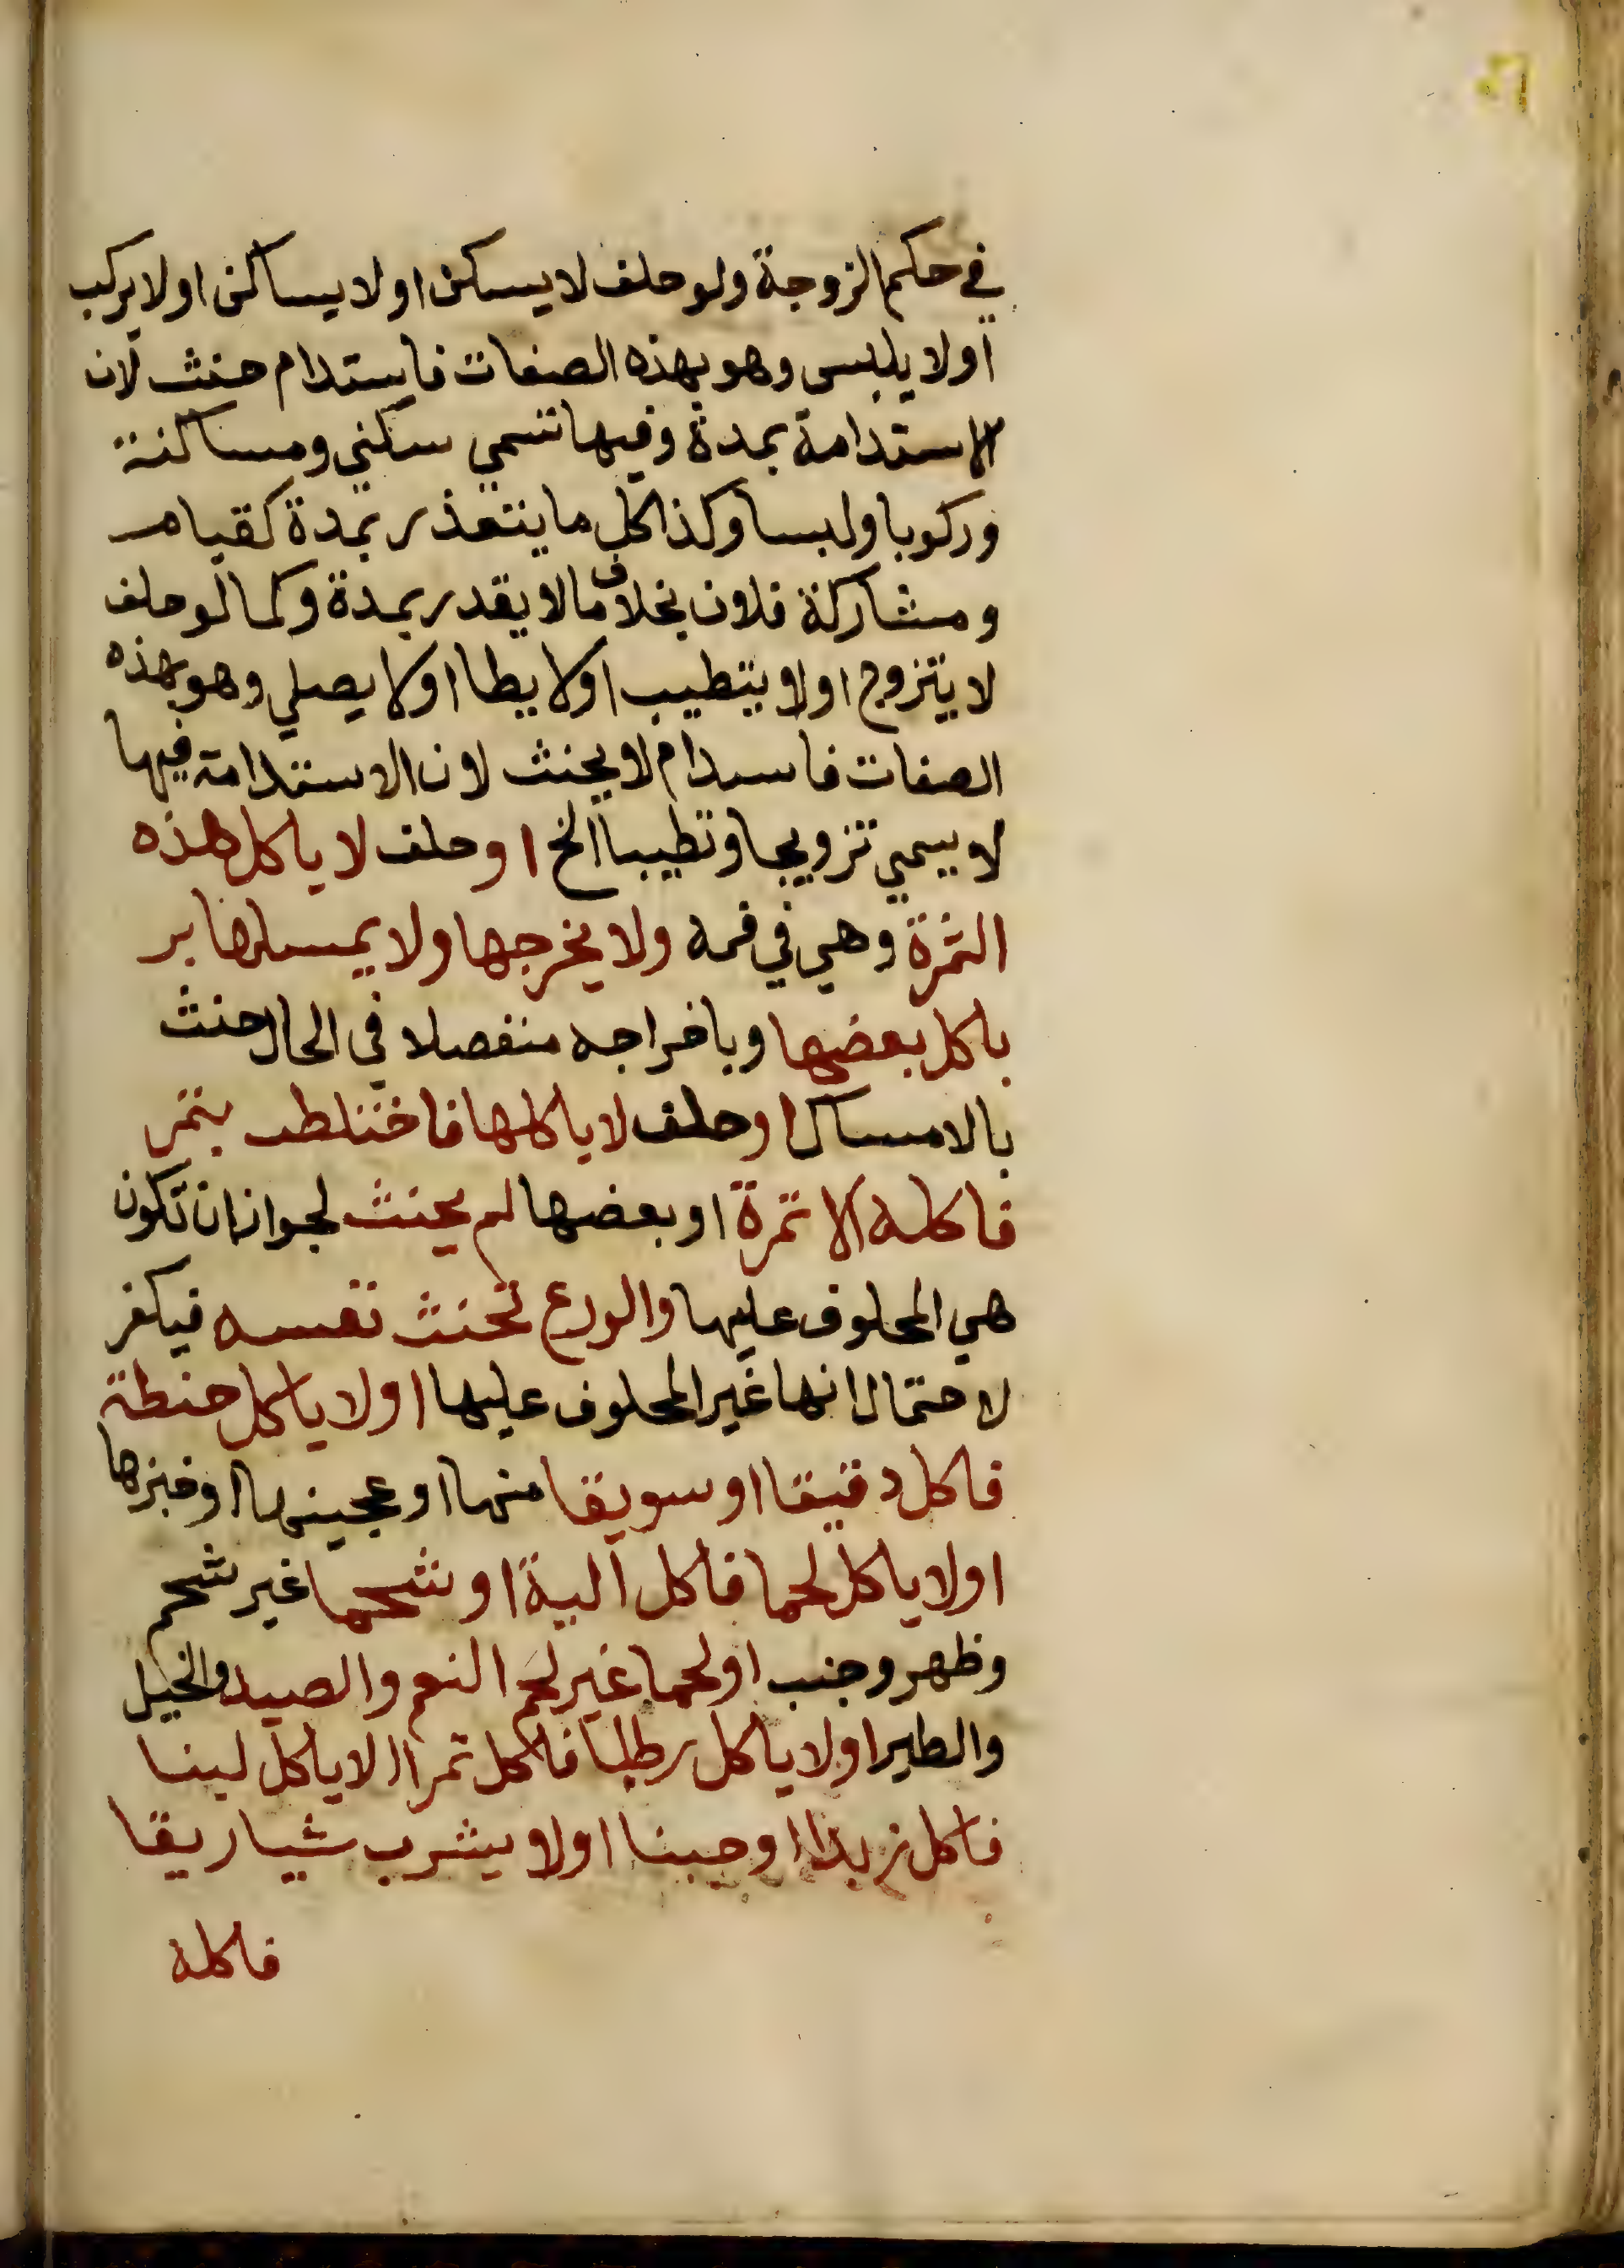 في حكم الزوجة ولو حلف لا يسكن او لا يساكن او لا يركب
او لا يلبس وهو بهذه الصفات فاستدام حنث لان
الاستدامة بمدة وفيها تسمي سكني ومساكنة
وركوبا ولبسا وكذا كل ما يتعذر بمدة كقيام
ومشاركة فلان بخلاف مالا يقدر بمدة وكما لو حلف
لا يتزوج او لا يتطيب او لا يطا او لا يصلي وهو بهذه
الصفات فاسدام لا يحنث لان الاستدامة فيها
لا يسمي تزويجا وتطيبا الخ او حلف لا ياكل هذه
التمرة وهي في فمه ولا يخرجها ولا يمسكها بر
باكل بعضها وباخراجه منفصلا في الحال حنث
بالامساك او حلف لا ياكلها فاختلطت بتمر
فاكله الا تمرة او بعضها لم يحنث لجواز ان تكون
هي المحلوف عليها والورع تحنث نفسه فيكفر
لاحتمال انها غير المحلوف عليها او لا ياكل حنطة
فاكل دقيقا او سويقا منها او عجينها او خبزها
او لا ياكل لحما فاكل الية او شحما غير شحم
وظهر وجنب او لحما غير لحم النعم والصيد والخيل
والطير او لا ياكل رطبا فاكل تمرا الا ياكل لبنا
فاكل زبدا او جبنا او لا يشرب شيا ريقا
فاكله